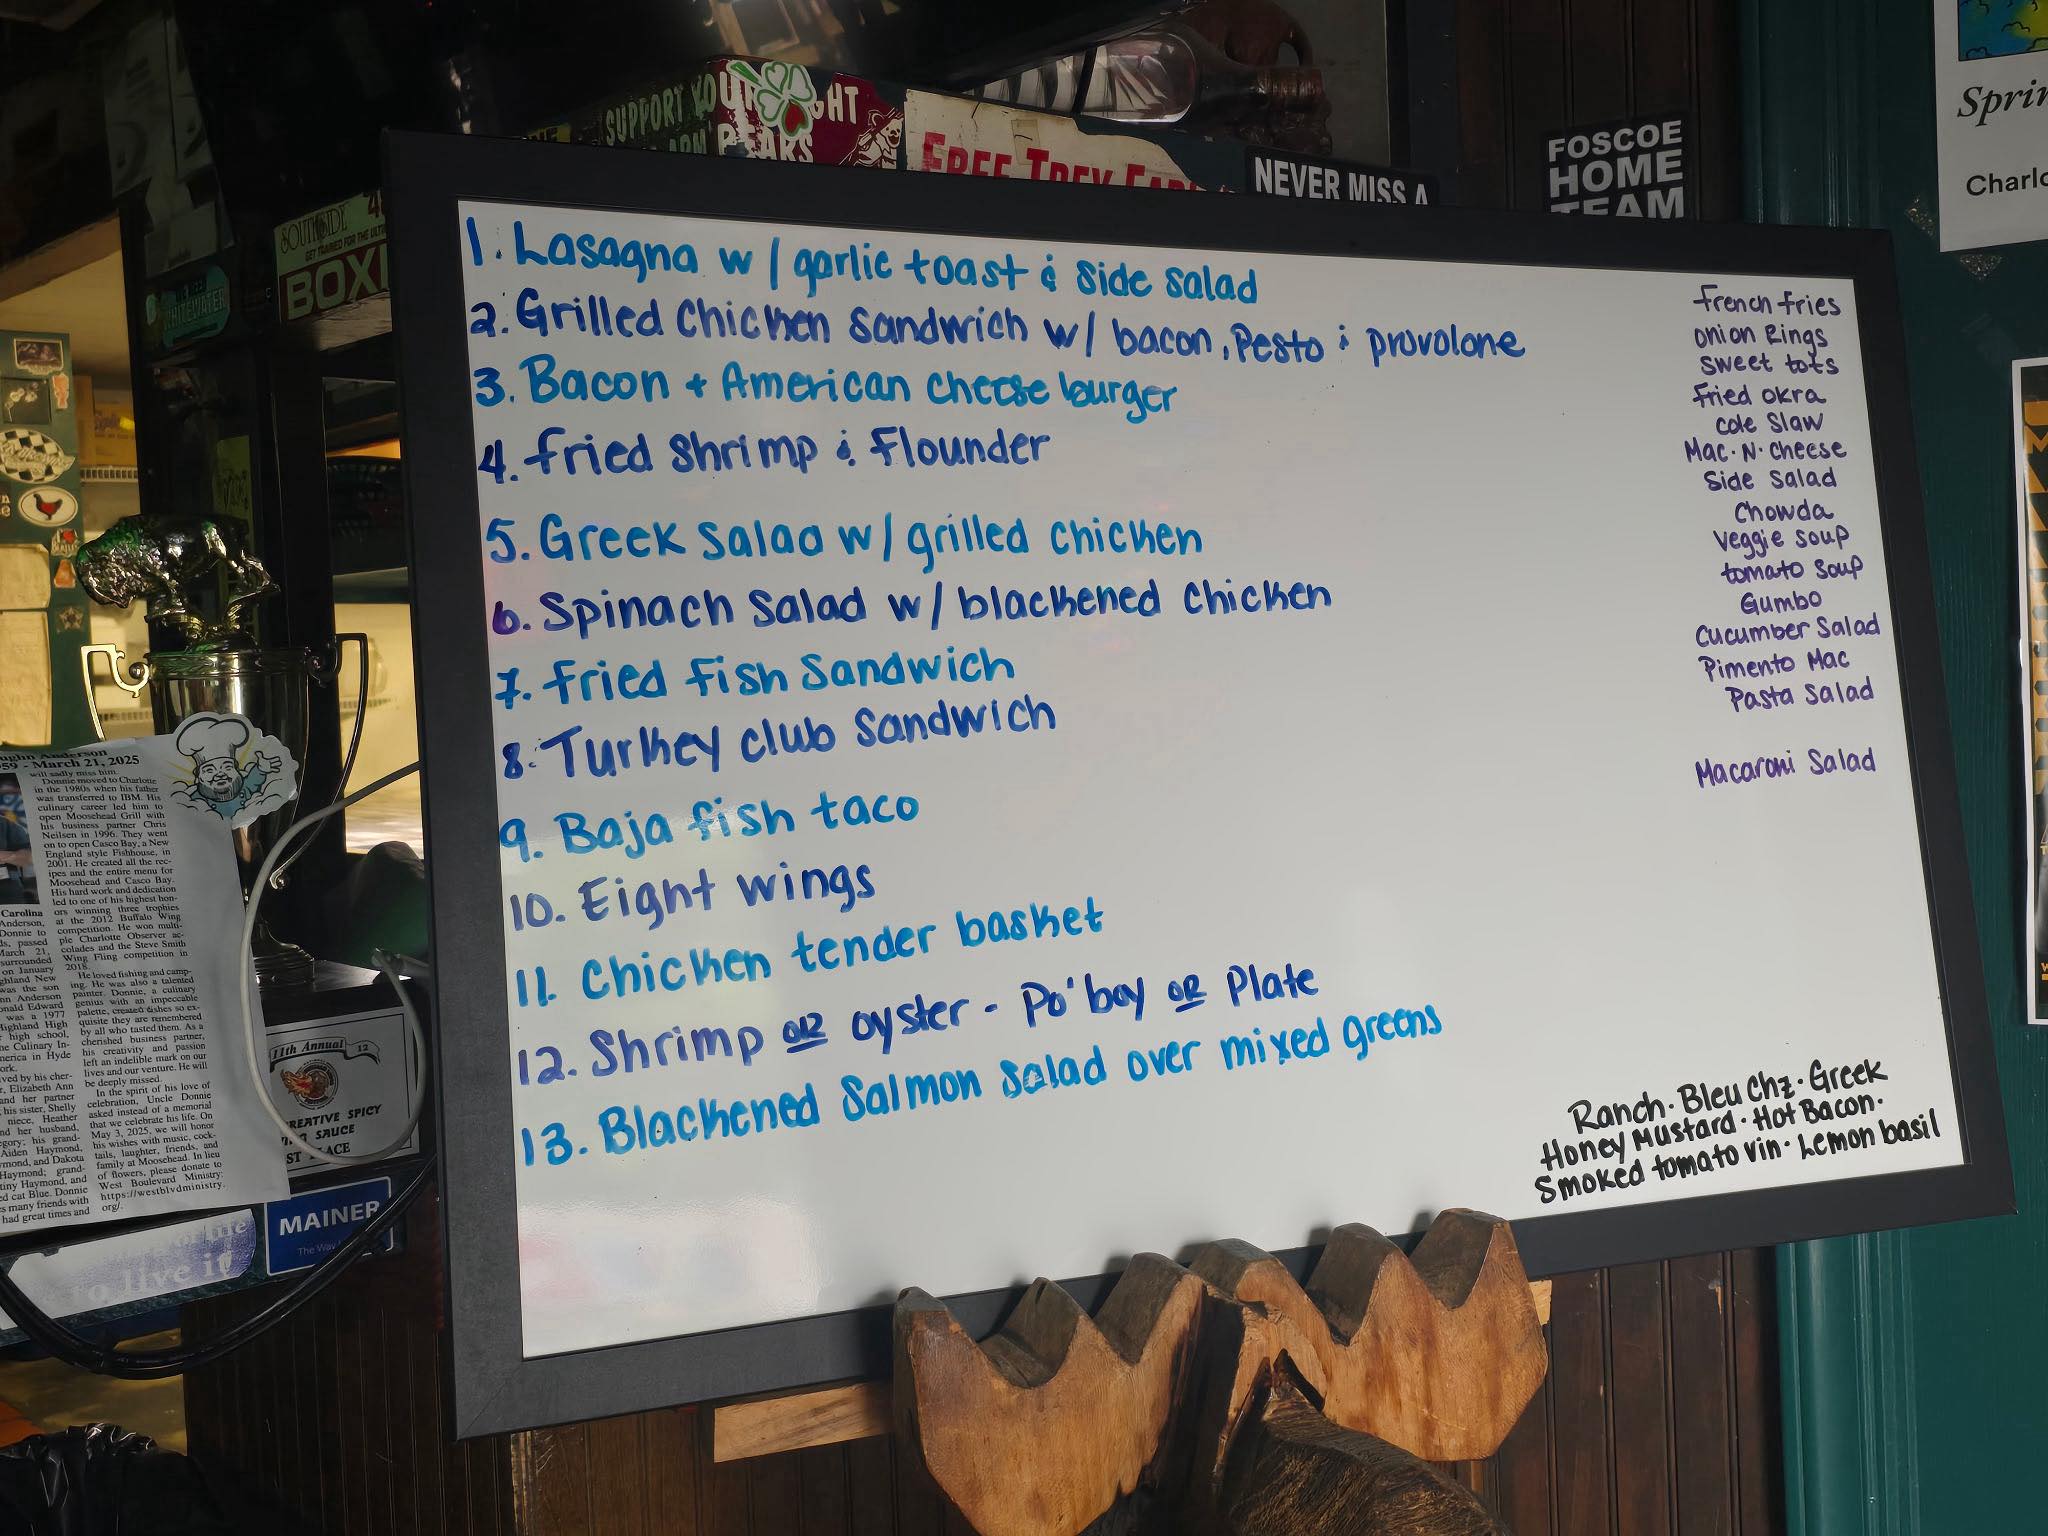 SUPPORT YOUR
FREE TREY
NEVER MISS A
FOSCOE
HOME
TEAM
Charlo
SOUTHSIDE
BOXI
WHITEWATER
1. Lasagna w/ garlic toast & side salad
2. Grilled Chicken Sandwich w/ bacon, Pesto & provolone
3. Bacon + American cheese burger
4. Fried Shrimp & Flounder
5. Greek Salad w/ grilled chicken
6. Spinach Salad w/ blackened chicken
7. Fried Fish Sandwich
8. Turkey club Sandwich
9. Baja fish taco
10. Eight wings
11. Chicken tender basket
12. Shrimp or oyster - Po'boy or Plate
13. Blackened Salmon salad over mixed greens
French Fries
onion Rings
sweet tots
Fried okra
cole Slaw
Mac·N·cheese
Side Salad
Chowda
Veggie soup
tomato Soup
Gumbo
Cucumber Salad
Pimento Mac
Pasta Salad
Macaroni Salad
Ranch·Bleu Chz·Greek
Honey Mustard·Hot Bacon·
Smoked tomato vin·Lemon basil
Anderson
59 - March 21, 2025
will sadly miss him.
Donnie moved to Charlotte
in the 1980s when his father
was transferred to IBM. His
culinary career led him to
open Moosehead Grill with
his business partner Chris
Neilsen in 1996. They went
on to open Casco Bay, a New
England style Fishhouse, in
2001. He created all the rec-
ipes and the entire menu for
Moosehead and Casco Bay.
His hard work and dedication
led to one of his highest hon-
ors winning three trophies
at the 2012 Buffalo Wing
competition. He won multi-
ple Charlotte Observer ac-
colades and the Steve Smith
Wing Fling competition in
2018.
He loved fishing and camp-
ing. He was also a talented
painter. Donnie, a culinary
genius with an impeccable
palette, created dishes so ex-
quisite they are remembered
by all who tasted them. As a
cherished business partner,
his creativity and passion
left an indelible mark on our
lives and our venture. He will
be deeply missed.
In the spirit of his love of
celebration, Uncle Donnie
asked instead of a memorial
that we celebrate his life. On
May 3, 2025, we will honor
his wishes with music, cock-
tails, laughter, friends, and
family at Moosehead. In lieu
of flowers, please donate to
West Boulevard Ministry:
https://westblvdministry.
org/.
11th Annual
CREATIVE SPICY
WING SAUCE
1ST PLACE
MAINER
The Way
to live it